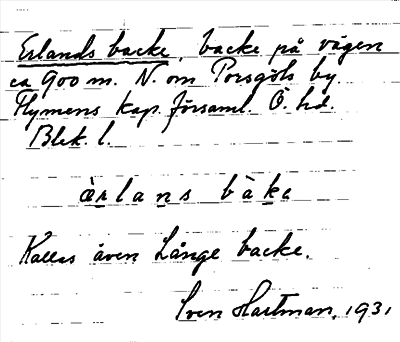 Erlands backe, backe på vägen
ca 900 m. N. om Porsgöls by.
Flymens kap. församl. Ö. hd.
Blek. l.
ærlans bàke
Kallas även Långe backe.
Sven Hartman, 1931